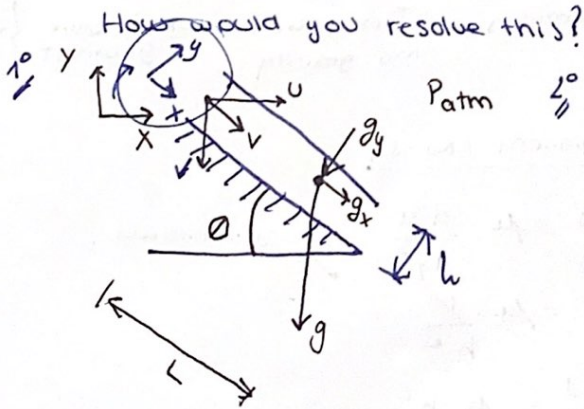 How would you resolve this?
1º
Y
X
y
x
u
v
Patm
2º
gy
gx
Ø
h
g
L